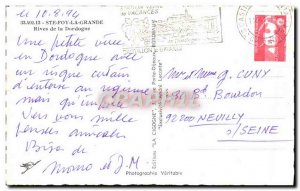 le 10.8.94
33.402.13 - STE-FOY-LA-GRANDE
Rives de la Dordogne
Une petite virée
en Dordogne avec
un risque certain
d'entorse au régime
mais qu'importe
Vers vous mille
pensées amicales
Bises de
Momo et J.M
VACANCES
Mr et Mme G. CUNY
30 Bd Bourdon
92200 NEUILLY
S/SEINE
Edition "LA CIGOGNE"
Photographie Véritable